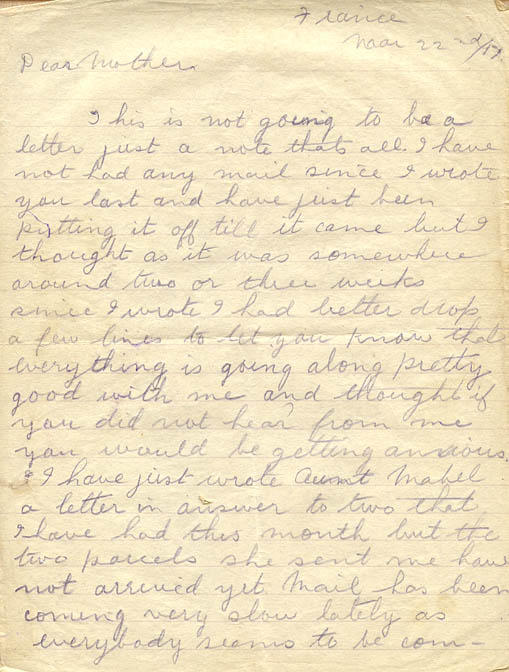 France
Mar 22nd/17
Dear Mother.
This is not going to be a
letter just a note thats all. I have
not had any mail since I wrote
you last and have just been
putting it off till it came but I
thought as it was somewhere
around two or three weeks
since I wrote I had better drop
a few lines to let you know that
everything is going along pretty
good with me and thought if
you did not hear from me
you would be getting anxious.
I have just wrote Aunt Mabel
a letter in answer to two that
I have had this month but the
two parcels she sent me have
not arrived yet. Mail has been
coming very slow lately as
everybody seems to be com-